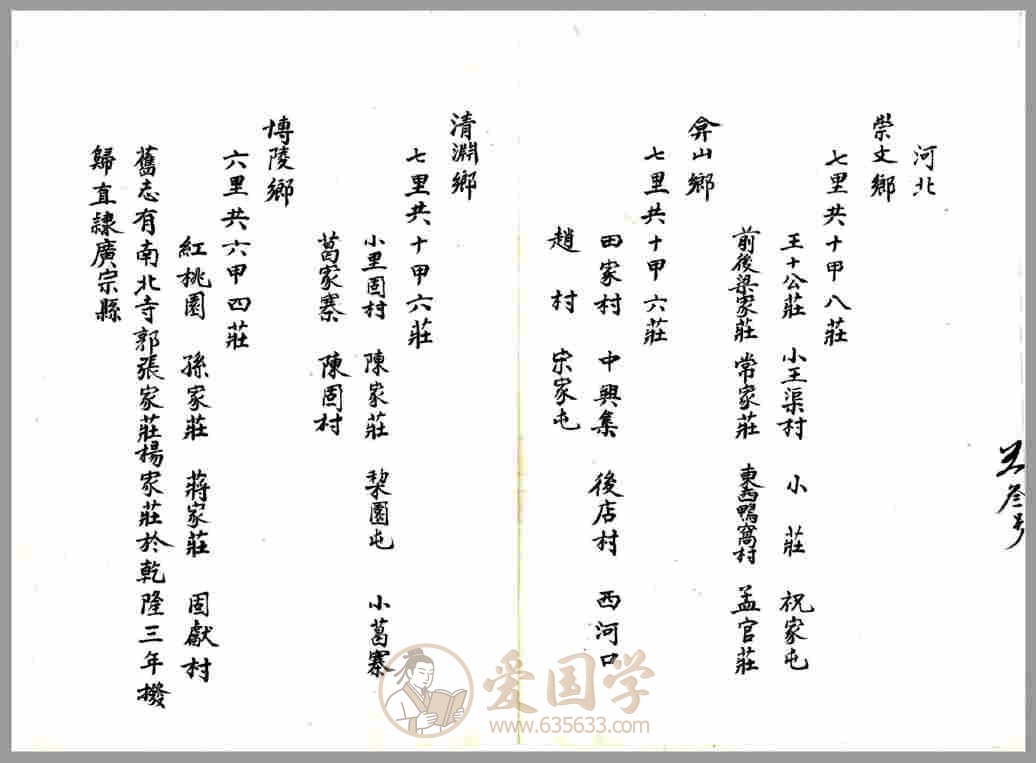 河北
崇文鄉
七里共十甲八莊
王十公莊 小王渠村 小莊 祝家屯
前後梁家莊 常家莊 東西鴨窩村 孟官莊
弇山鄉
七里共十甲六莊
田家村 中興集 後店村 西河口
趙村 宋家屯
清淵鄉
七里共十甲六莊
小里固村 陳家莊 梨園屯 小葛寨
葛家寨 陳固村
博陵鄉
六里共六甲四莊
紅桃園 孫家莊 蔣家莊 固獻村
舊志有南北寺郭張家莊楊家莊於乾隆三年撥
歸直隸廣宗縣
爱国学
www.635633.com